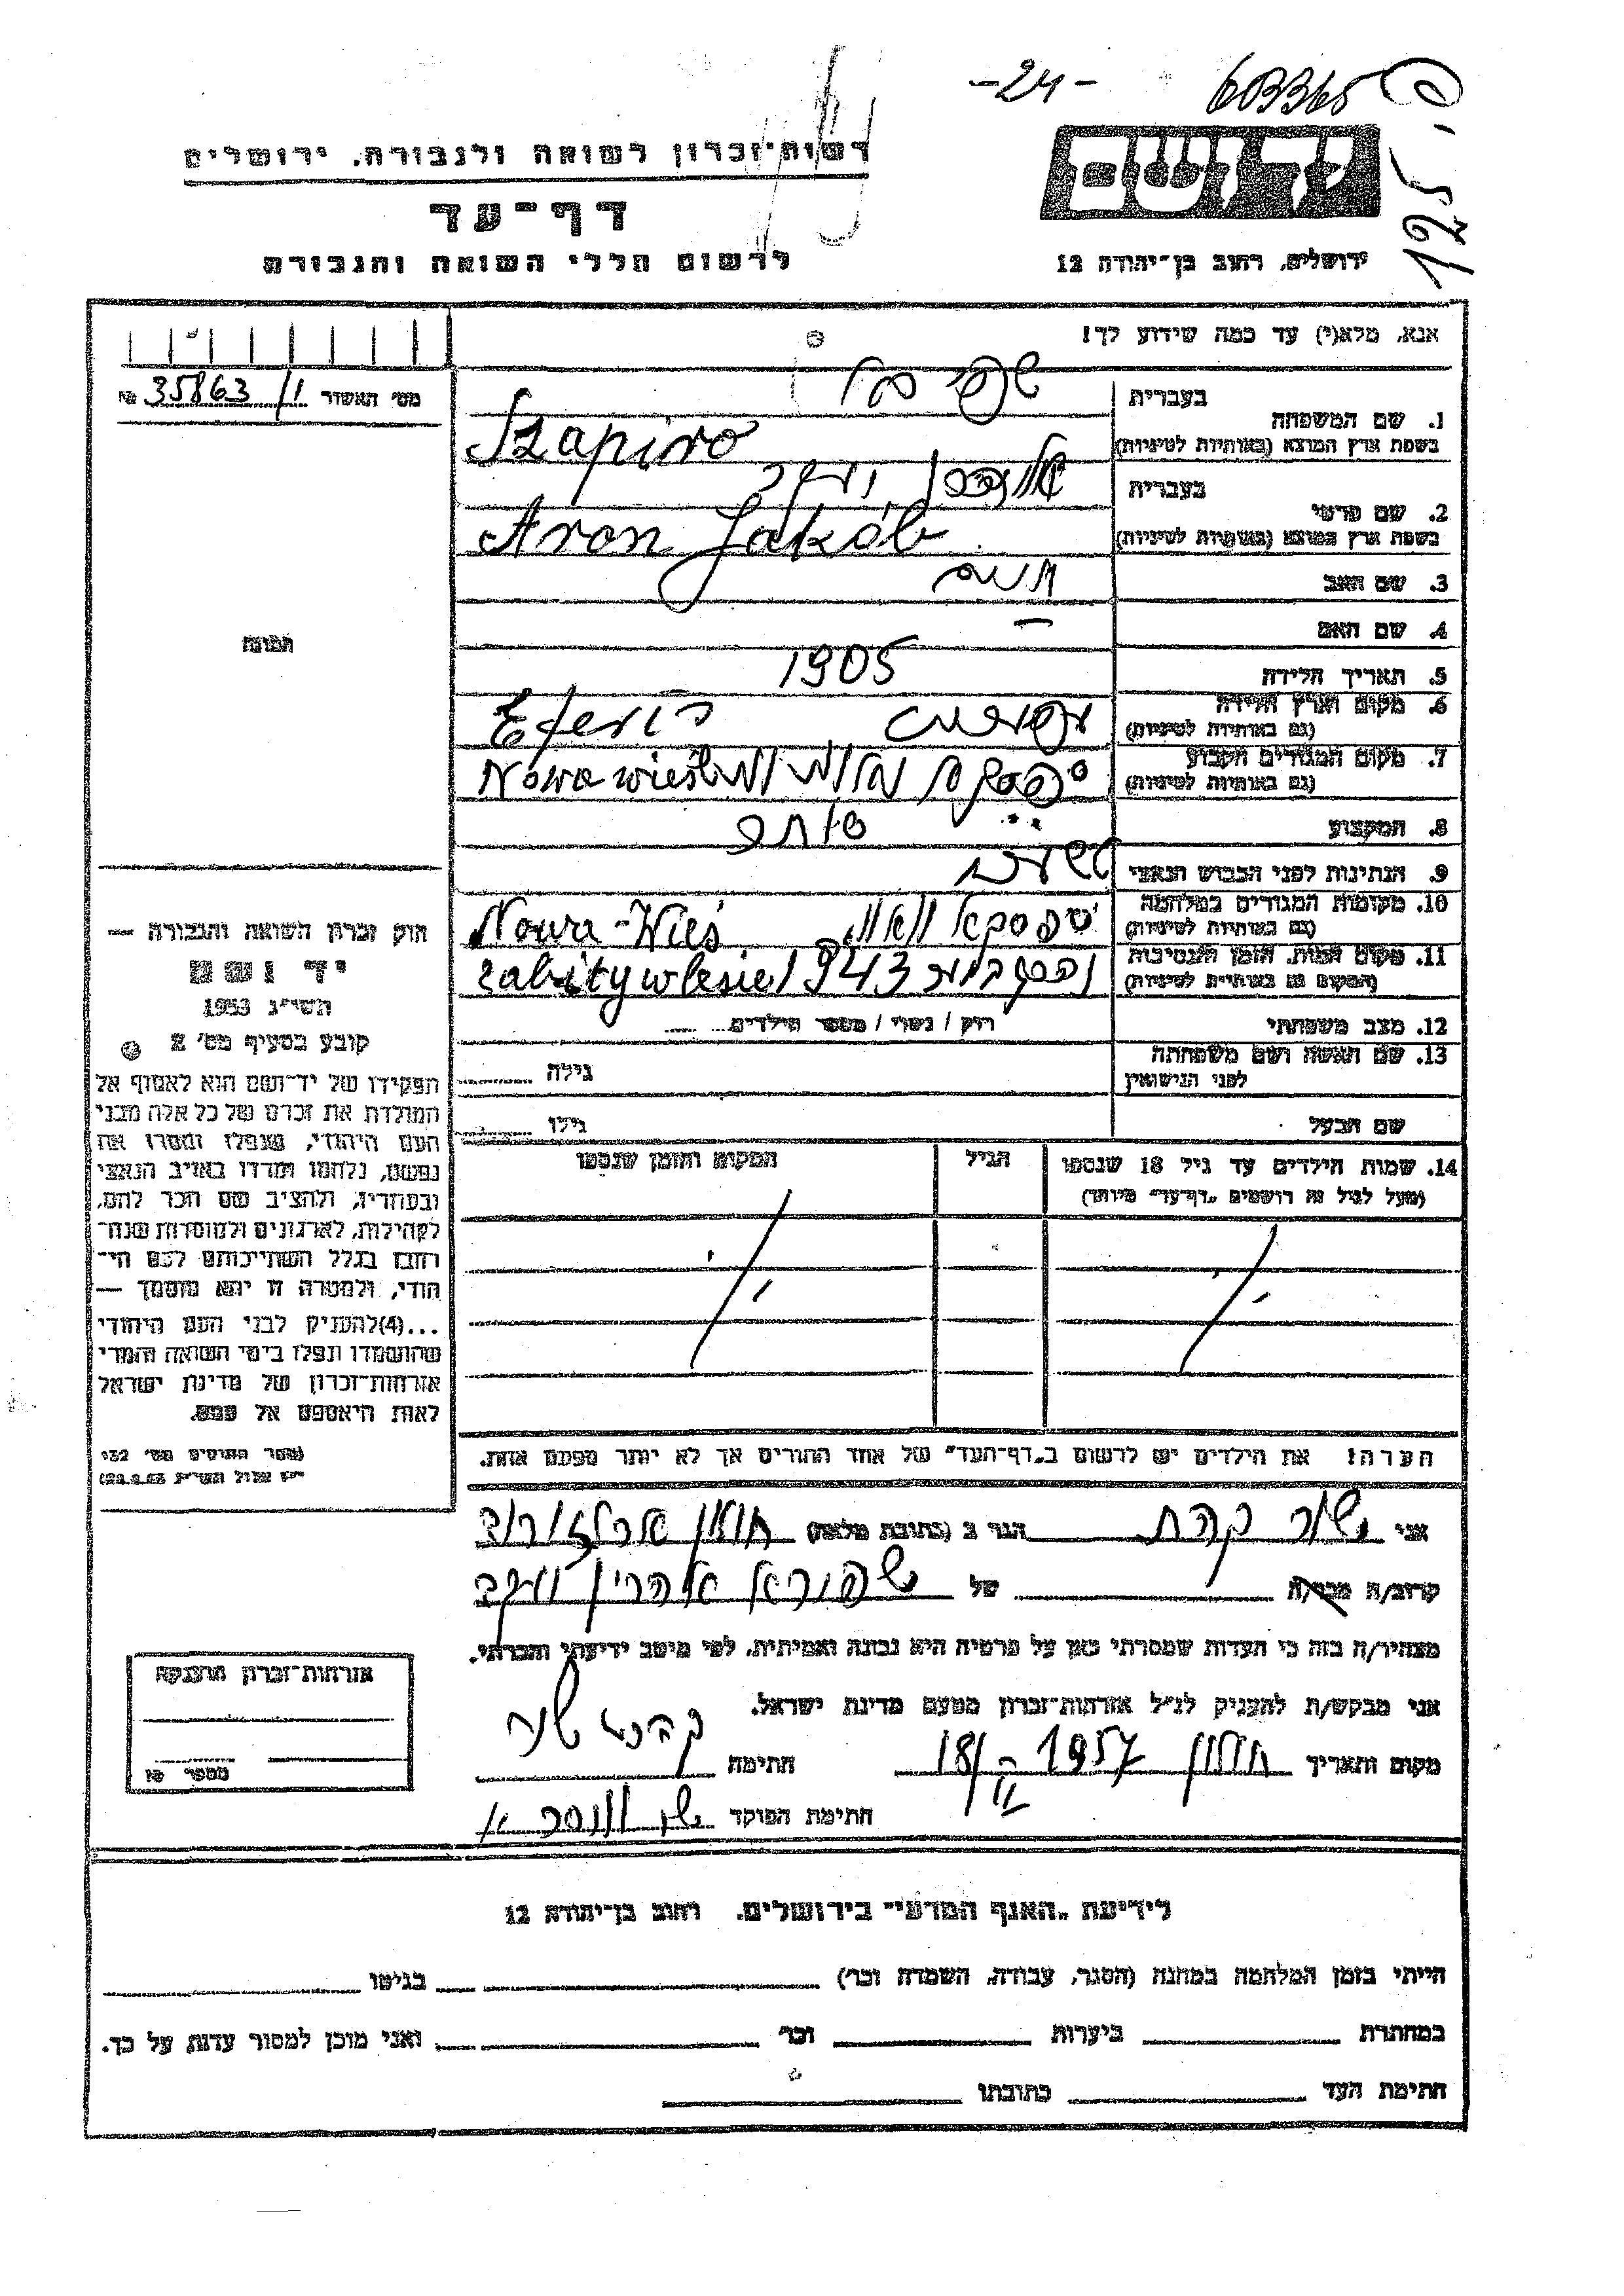 -24-
603365
125
רשות-זכרון לשואה ולגבורה, ירושלים
יד ושם
דף-עד
לרשום חללי השואה והגבורה
ירושלים, רחוב בן-יהודה 12
אנא, מלא(י) עד כמה שידוע לך!
מס' האשור 35863/1 №
1. שם המשפחה
בעברית
בשפת ארץ המוצא (באותיות לטיניות)
Szapiro
2. שם פרטי
בעברית
בשפת ארץ המוצא (באותיות לטיניות)
Aron Jakób
3. שם האב
4. שם האם —
5. תאריך הלידה 1905
6. מקום וארץ הלידה
(גם באותיות לטיניות)
7. מקום המגורים הקבוע
(גם באותיות לטיניות)
Nowa wieś
8. המקצוע
9. הנתינות לפני הכבוש הנאצי
10. מקומות המגורים במלחמה
(גם באותיות לטיניות)
Nowa-Wieś
11. מקום המות, הזמן והנסיבות
(המקום גם באותיות לטיניות)
zabity w lesie 1943
12. מצב משפחתי
רוק / נשוי / מספר הילדים
13. שם האשה ושם משפחתה
לפני הנישואין
גילה
שם הבעל
גילו
14. שמות הילדים עד גיל 18 שנספו
(מעל לגיל זה רושמים "דף-עד" מיוחד)
הגיל
המקום והזמן שנספו
הערה! את הילדים יש לרשום ב"דף-העד" של אחד ההורים אך לא יותר מפעם אחת.
התמונה
חוק זכרון השואה והגבורה —
יד ושם
תשי"ג 1953
קובע בסעיף מס' 2
תפקידו של יד-ושם הוא לאסוף אל
המולדת את זכרם של כל אלה מבני
העם היהודי, שנפלו ומסרו את
נפשם, נלחמו ומרדו באויב הנאצי
ובעוזריו, ולהציב שם וזכר להם,
לקהילות, לארגונים ולמוסדות שנח-
רבו בגלל השתייכותם לעם הי-
הודי, ולמטרה זו יהא מוסמך —
...(4) להעניק לבני העם היהודי
שהושמדו ונפלו בימי השואה והמרי
אזרחות-זכרון של מדינת ישראל
לאות היאספם אל עמם.
(ספר החוקים מס' 132
י"ז אלול תשי"ג 28.8.53)
אני
הגר ב (כתובת מלאה)
קרוב/ה מכר/ה
של שפירא אהרון יעקב
מצהיר/ה בזה כי העדות שמסרתי כאן על פרטיה היא נכונה ואמיתית, לפי מיטב ידיעתי והכרתי.
אני מבקש/ת להעניק לנ"ל אזרחות-זכרון מטעם מדינת ישראל.
מקום ותאריך חולון 18/II-1957
חתימה
חתימת הפוקד
אזרחות-זכרון הוענקה
מספר №
לידיעת "האגף המדעי" בירושלים, רחוב בן-יהודה 12
הייתי בזמן המלחמה במחנה (הסגר, עבודה, השמדה וכו')
בגיטו
במחתרת
ביערות
וכו'
ואני מוכן למסור עדות על כך.
חתימת העד
כתובתו